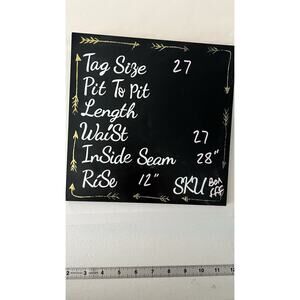 Tag Size 27
Pit To Pit
Length
WaiSt 27
InSide Seam 28"
RiSe 12" SKU Box
FFF
2 3 4 5 6 7 8 9 10 11 12